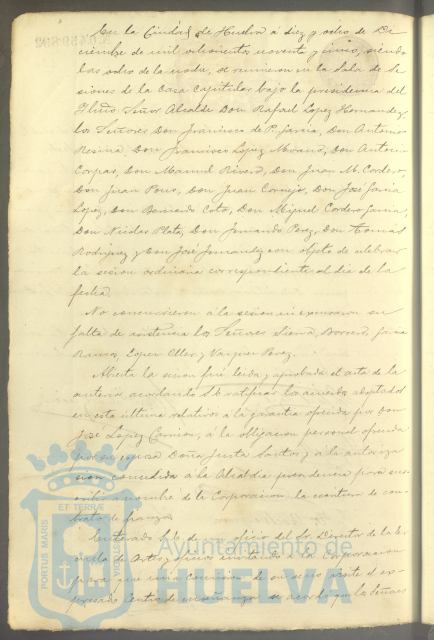 En la Ciudad de Huelva á diez y ocho de Di-
ciembre de mil ochocientos noventa y cinco, siendo
las ocho de la noche, se reunieron en la Sala de Se-
siones de la Casa Capitular bajo la presidencia del
Iltmo Señor Alcalde Don Rafael Lopez Hernandez,
los Señores Don Francisco de P. Garcia, Don Antonio
Resina, Don Francisco Lopez Moreno, Don Antonio
Corpas, Don Manuel Rivero, Don Juan M. Cordero,
Don Juan Pons, Don Juan Cornejo, Don José Garcia
Lopez, Don Bernardo Coto, Don Miguel Cordero Garcia,
Don Nicolas Plata, Don Fernando Perez, Don Tomas
Rodriguez y Don José Fernandez con objeto de celebrar
la sesion ordinaria correspondiente al dia de la
fecha.
No concurrieron á la sesion ni excusaron su
falta de asistencia los Señores Sierra, Borrero, Garcia
Ramos, Lopez y Vazquez Perez.
Abierta la sesion fué leida y aprobada el acta de la
anterior acordando S.E. ratificar los acuerdos adoptados
en esta última relativos á la garantia ofrecida por Don
José Lopez Carrion, á la obligacion personal ofrecida
por su esposa Doña Justa Santos y á la autoriza
cion concedida á la Alcaldia presidencia para sus-
cribir á nombre de la Corporacion la escritura de con-
trato de fianza.
Enterado S.E. de un oficio del Sr. Director de la Es-
cuela de Artes y oficios invitando á la Corporacion
para que una Comision de su seno visite el ex-
presado Centro de enseñanza se acordó que los Señores
Ayuntamiento de
HUELVA
PORTUS MARIS
ET TERRÆ